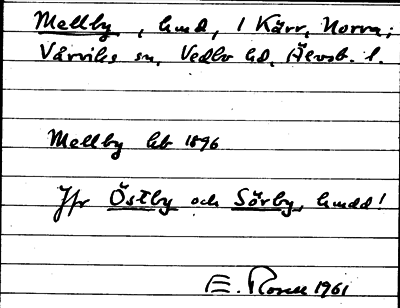 Mellby, hmd, i Kärr, Norra;
Vårviks sn, Vedbo hd, Älvsb. l.
Mellby hb 1896
Jfr Östby och Sörby, hmdd!
E. Rosell 1961